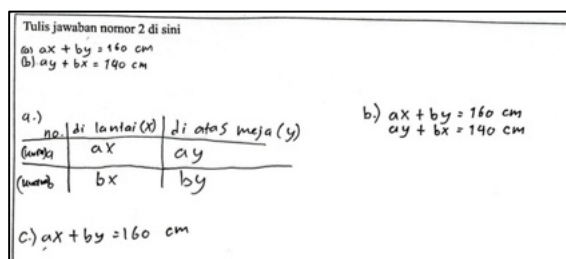 Tulis jawaban nomor 2 di sini
(a) ax + by = 160 cm
(b) ay + bx = 140 cm
a.)
no. di lantai (x) di atas meja (y)
a ax ay
b bx by
b.) ax + by = 160 cm
ay + bx = 140 cm
c.) ax + by = 160 cm